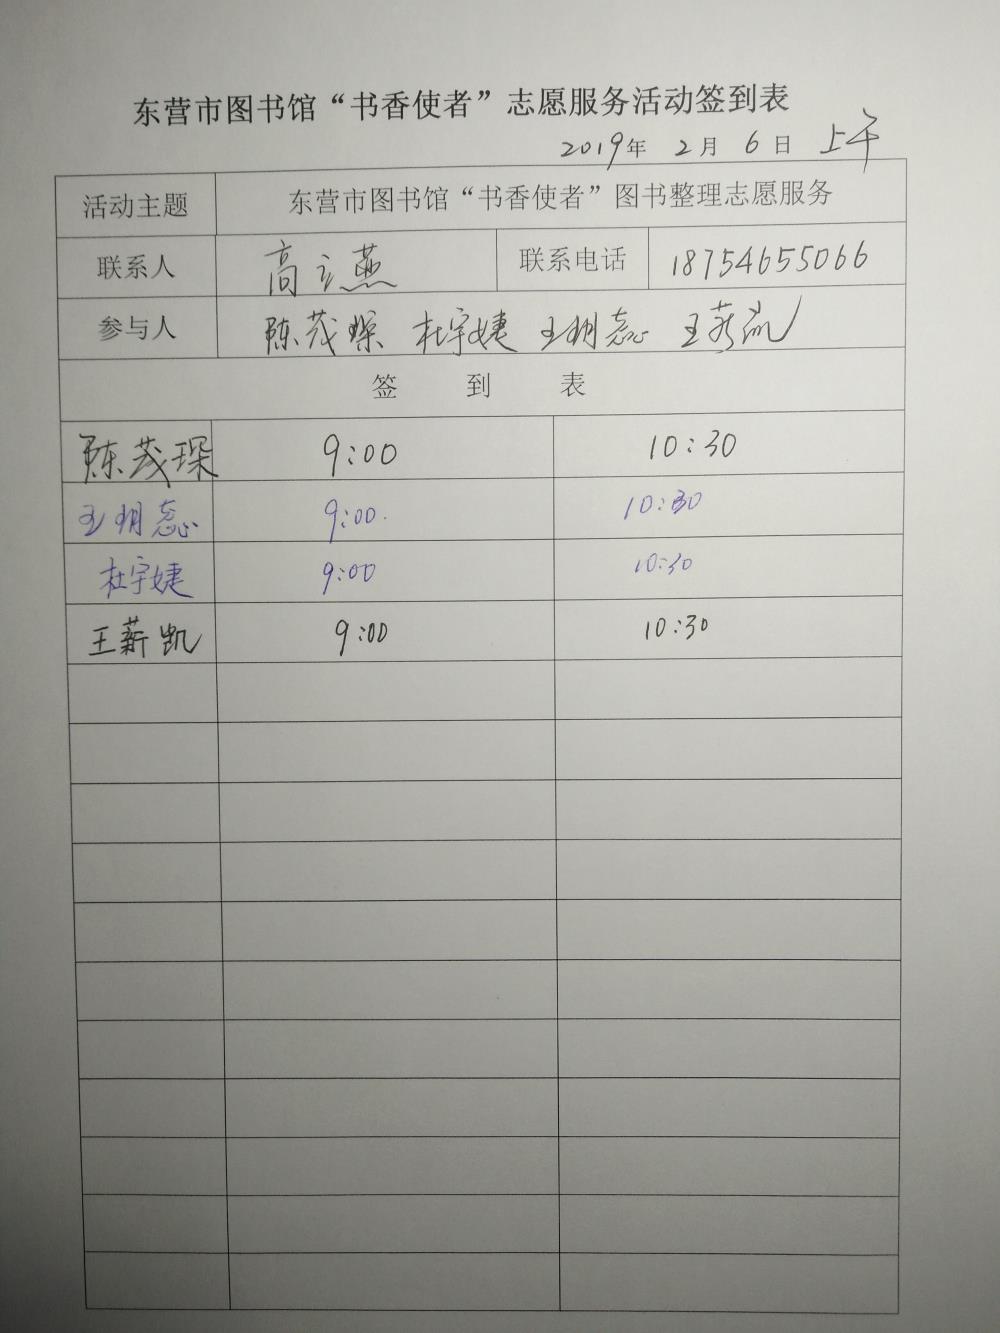 东营市图书馆“书香使者”志愿服务活动签到表
2019年 2月 6日 上午
活动主题 东营市图书馆“书香使者”图书整理志愿服务
联系人 高立燕 联系电话 18754655066
参与人 陈茂琛 杜宇婕 王玥蕊 王薪凯
签 到 表
陈茂琛 9:00 10:30
王玥蕊 9:00 10:30
杜宇婕 9:00 10:30
王薪凯 9:00 10:30